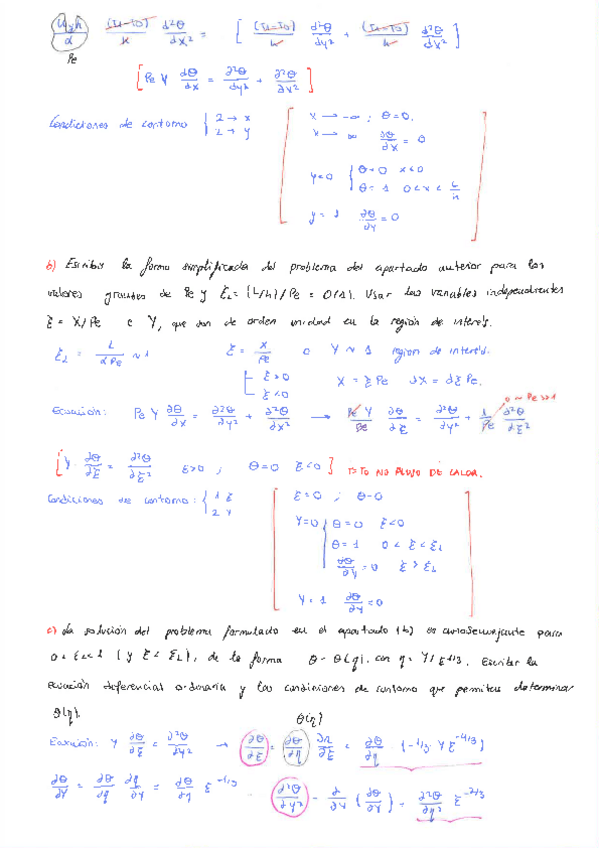 u_∞ h/α (T₁-T₀)/h d²θ/dx² = [ (T₁-T₀)/h d²θ/dy² + (T₁-T₀)/h d²θ/dx² ]
Pe
[ Pe Y dθ/dx = ∂²θ/∂y² + ∂²θ/∂x² ]
Condiciones de contorno { 2 → x
2 → y
x → -∞ ; θ=0.
x → ∞ ∂θ/∂x = 0
y=0 { θ=0 x<0
θ=1 0<x<L/h
y=1 ∂θ/∂y = 0
b) Escribir la forma simplificada del problema del apartado anterior para los
valores grandes de Pe y ξL = (L/h)/Pe = O(1). Usar las variables independientes
ξ = X/Pe e Y, que son de orden unidad en la región de interés.
ξL = L/αPe ~ 1 ξ = X/Pe o Y ~ 1 region de interés.
ξ>0
ξ<0
X = ξ Pe ∂X = ∂ξ Pe.
0 ~ Pe>>1
Ecuación: Pe Y ∂θ/∂x = ∂²θ/∂y² + ∂²θ/∂x² → Pe Y/Pe ∂θ/∂ξ = ∂²θ/∂y² + 1/Pe ∂²θ/∂ξ²
[ Y ∂θ/∂ξ = ∂²θ/∂ξ² ξ>0 ; θ=0 ξ<0 ] ESTO NO FLUJO DE CALOR.
Condiciones de contorno: { 1 ξ
2 Y
ξ=0 ; θ=0
Y=0 θ=0 ξ<0
θ=1 0<ξ<ξL
∂θ/∂Y = 0 ξ>ξL
Y=1 ∂θ/∂Y = 0
c) La solución del problema formulado en el apartado (b) es autosemejante para
0<ξ<<1 (y ξ<ξL), de la forma θ=θ(η). con η=Y/ξ^1/3. Escribir la
ecuación diferencial ordinaria y las condiciones de contorno que permiten determinar
θ(η).
θ(η)
Ecuación: Y ∂θ/∂ξ = ∂²θ/∂y² → ∂θ/∂ξ = ∂θ/∂η ∂η/∂ξ = ∂θ/∂η (-1/3 Y ξ^-4/3)
∂θ/∂Y = ∂θ/∂η ∂η/∂Y = ∂θ/∂η ξ^-1/3 ∂²θ/∂y² = ∂/∂Y (∂θ/∂Y) = ∂²θ/∂η² ξ^-2/3